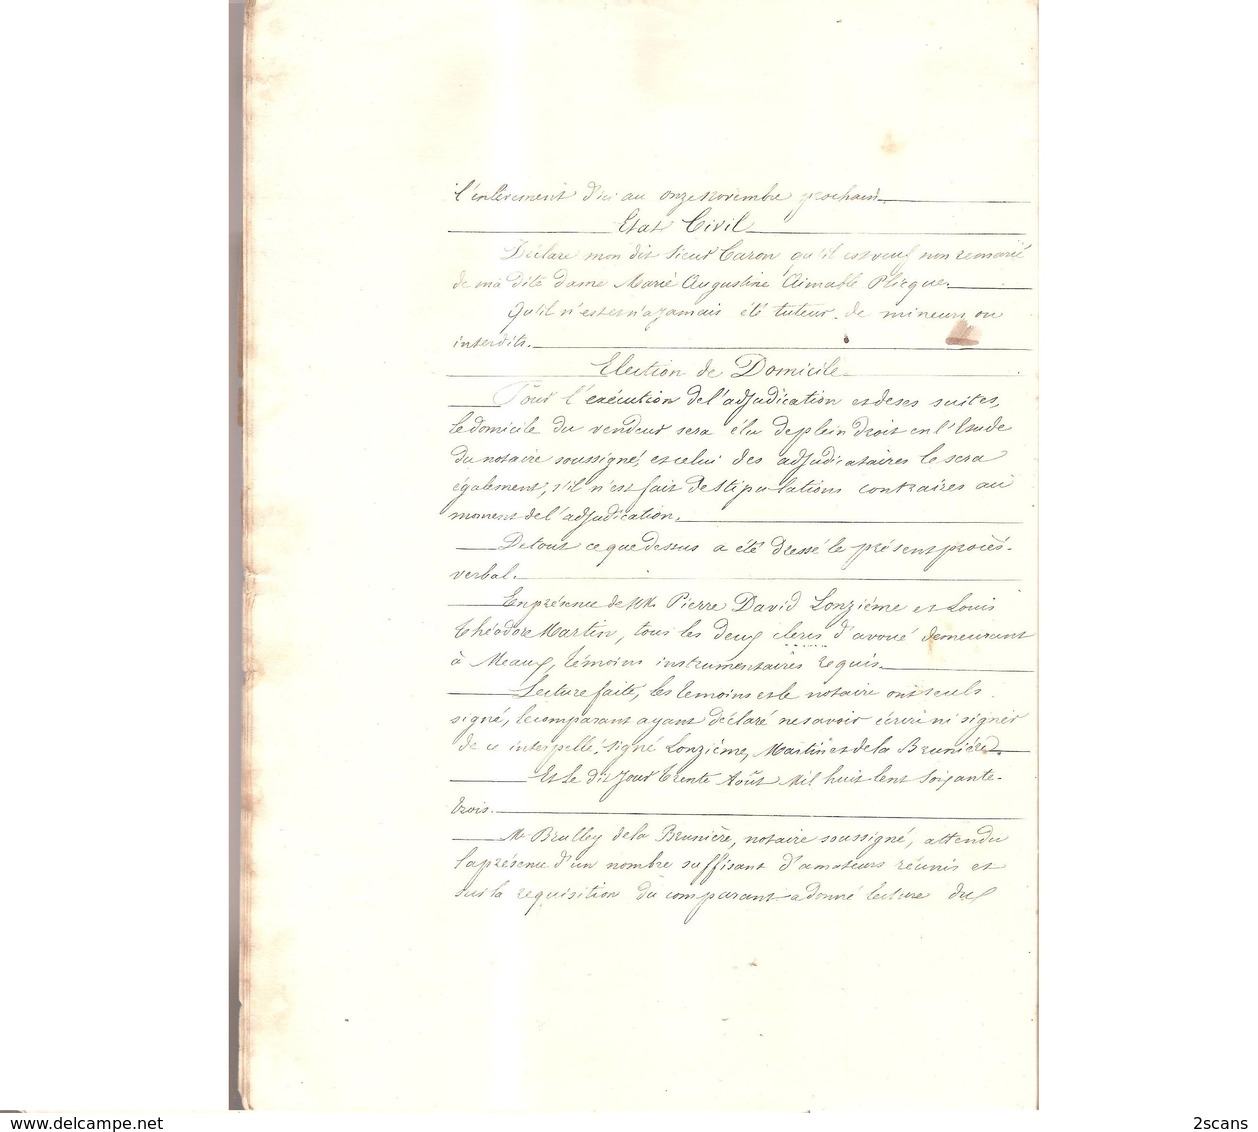 l'enlèvement d'ici au onze novembre prochain.
Etat Civil
Déclare mon dit sieur Caron qu'il est veuf non remarié
de ma dite dame Marie Augustine Aimable Plicque.
Qu'il n'est et n'a jamais été tuteur de mineurs ou
interdits.
Election de Domicile
Pour l'exécution de l'adjudication et de ses suites,
le domicile du vendeur sera élu de plein droit en l'Etude
du notaire soussigné, et celui des adjudicataires le sera
également, s'il n'est fait de stipulations contraires au
moment de l'adjudication.
De tout ce que dessus a été dressé le présent procès-
verbal.
En présence de MM. Pierre David Lonzième et Louis
Théodore Martin, tous les deux clercs d'avoué demeurant
à Meaux, témoins instrumentaires requis.
Lecture faite, les témoins et le notaire ont seuls
signé, le comparant ayant déclaré ne savoir écrire ni signer
de ce interpellé. Signé Lonzième, Martin et de la Brunière.
Et le dit jour trente Août Mil huit Cent Soixante-
trois.
Me Brulley de la Brunière, notaire soussigné, attendu
la présence d'un nombre suffisant d'amateurs réunis et
sur la requisition du comparant a donné lecture du
delcampe.net
2scans